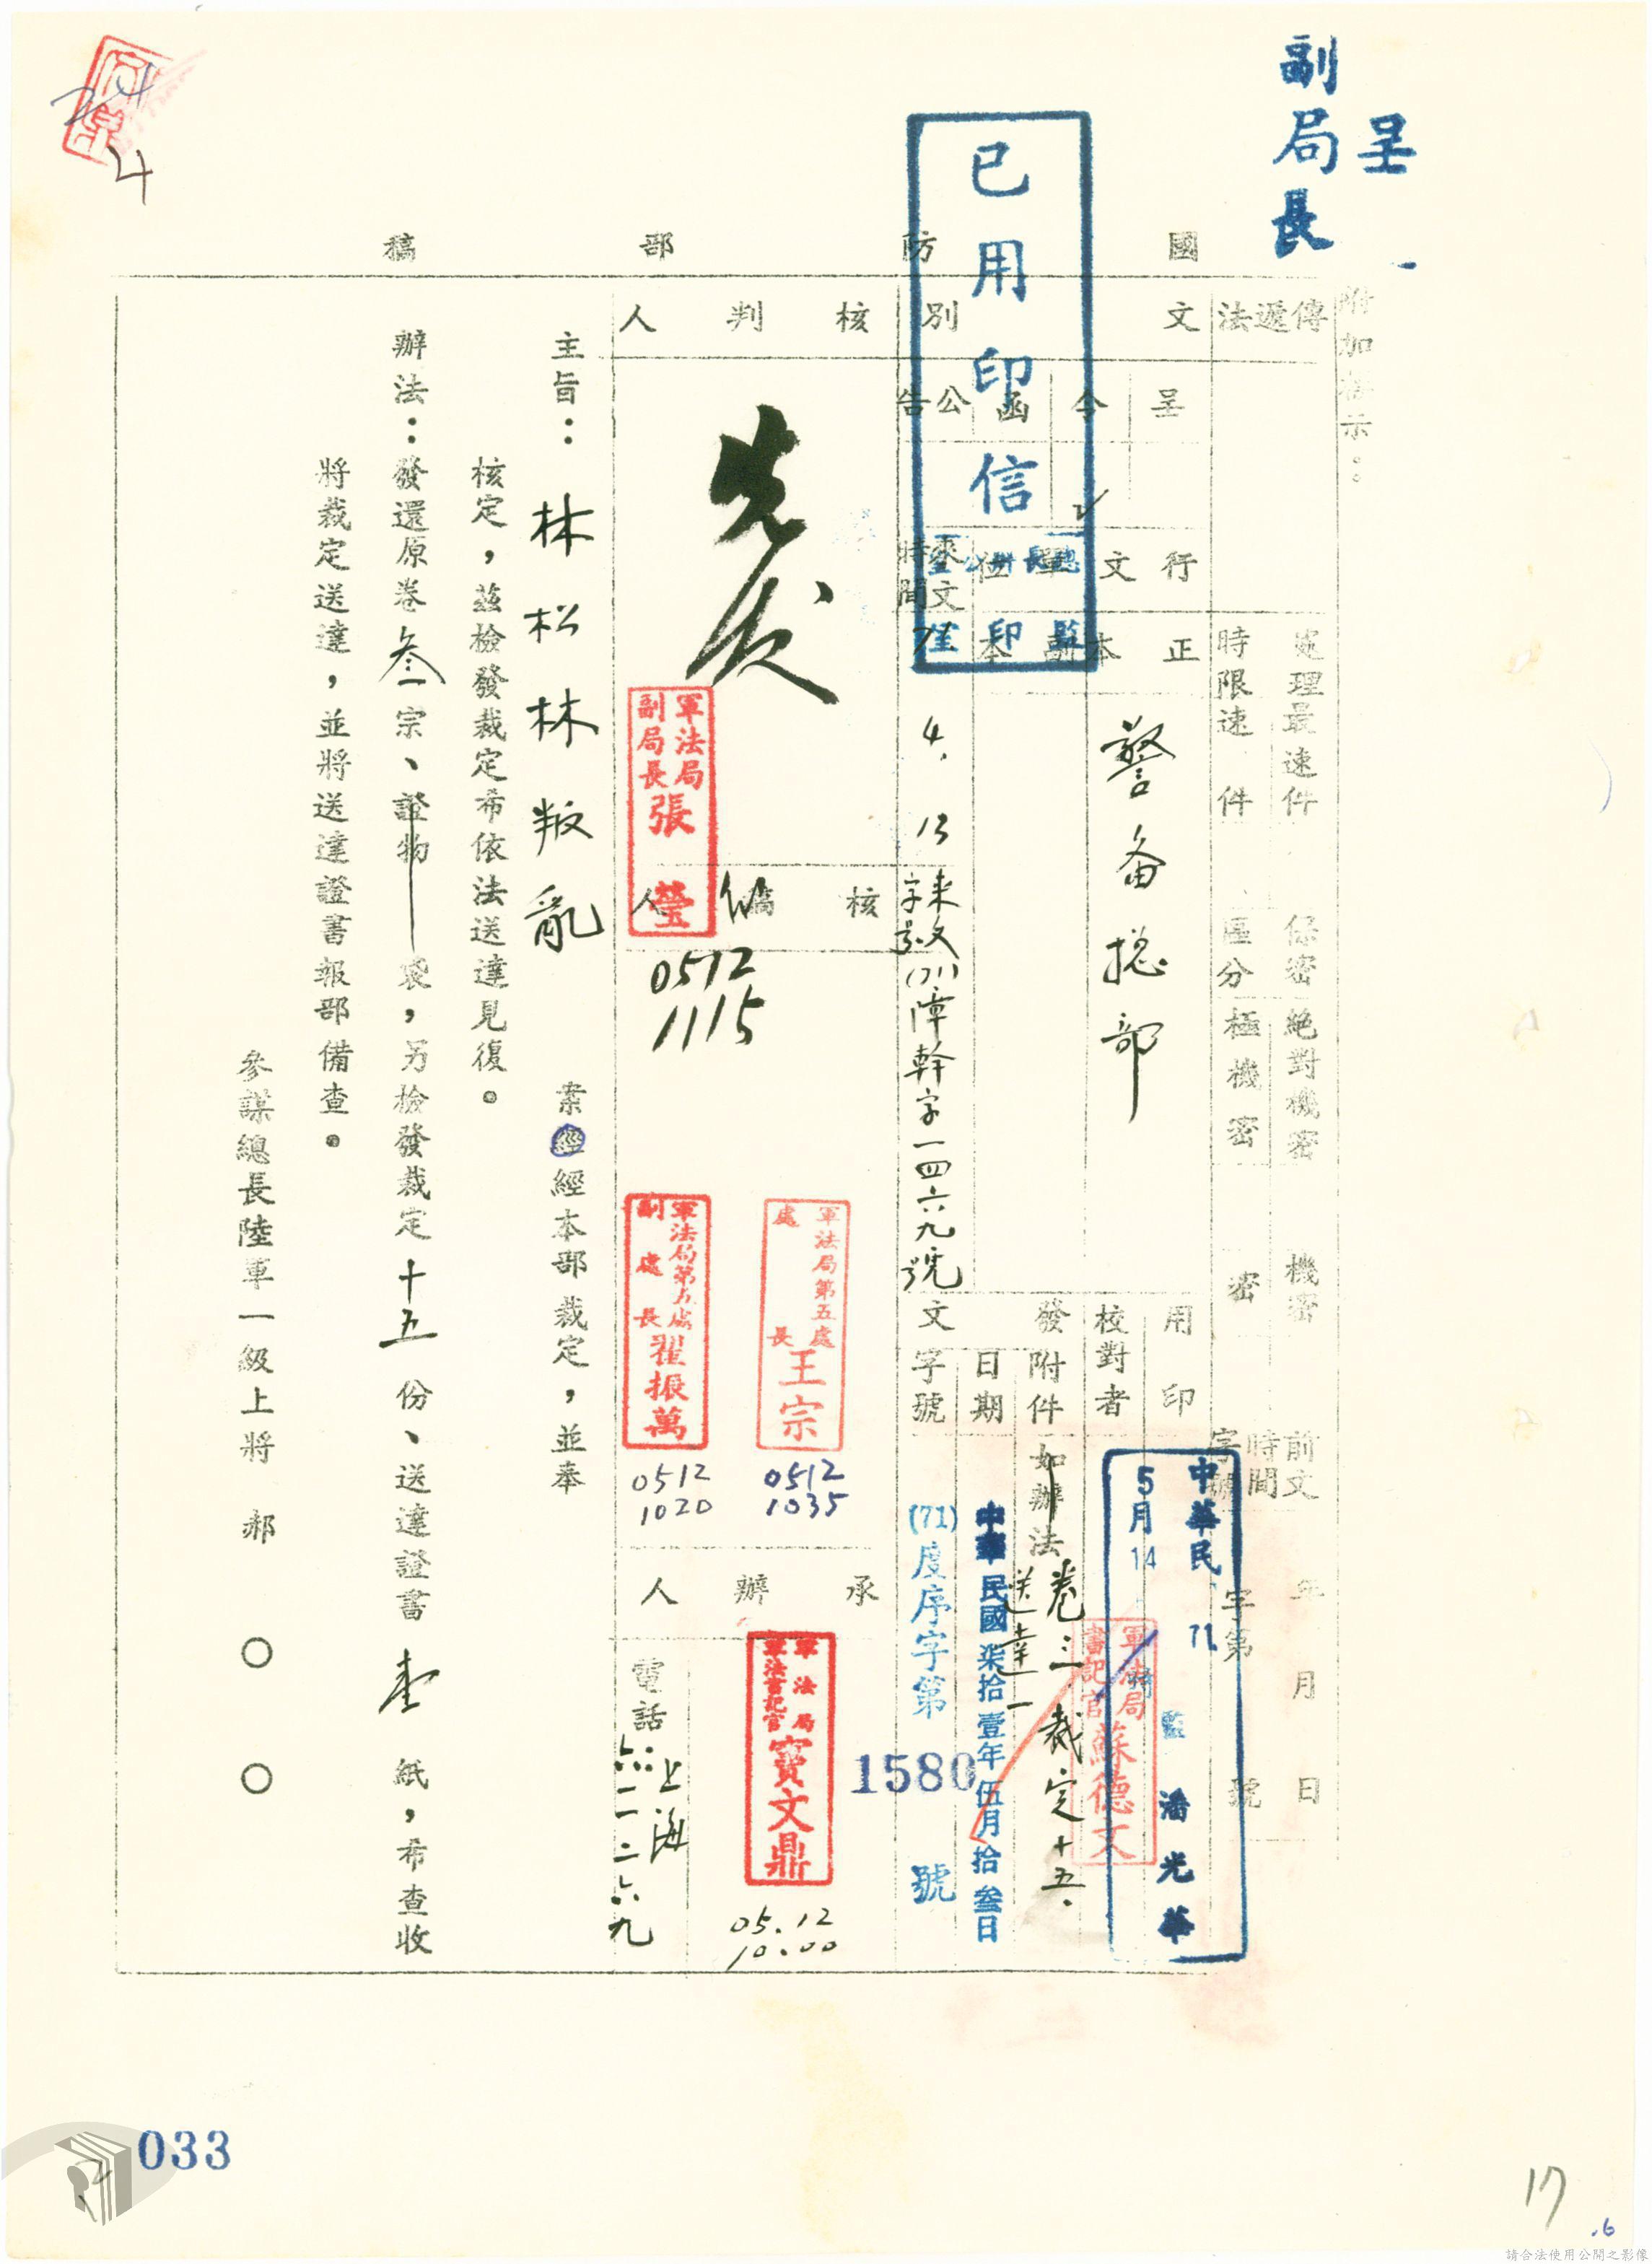 呈
副局長
附加標示：
國防部稿
傳遞法
處理時限
最速件
速件
保密區分
絕對機密
極機密
機密
密
前文時間字號
年月日
字第號
文別
呈
令
函
公告
行文單位
正本
副本
警备捴部
用印
中華民
71
5月14
監
潘光華
校對者
軍法局
書記官
蘇德文
發文
附件
如辦法
卷三裁定十五.
送達一
日期
中華民國柒拾壹年伍月拾叁日
字號
(71)度序字第
1580
號
來文時間
71
4.
13
來文字號
(71)障幹字一四六九號
已用印信
核判人
軍法局
副局長
張瑩
核稿人
0512
1115
軍法局第五處
處長
王宗
0512
1035
軍法局第五處
副處長
翟振萬
0512
1020
承辦人
軍法局
軍法書記官
竇文鼎
05.12
10.00
電話
上海
六六二二三六九
主旨：林松林叛亂案經經本部裁定，並奉
核定，茲檢發裁定希依法送達見復。
辦法：發還原卷叁宗、證物袋，另檢發裁定十五份、送達證書壹紙，希查收
將裁定送達，並將送達證書報部備查。
參謀總長陸軍一級上將郝○○
4
033
17
.6
請合法使用公開之影像